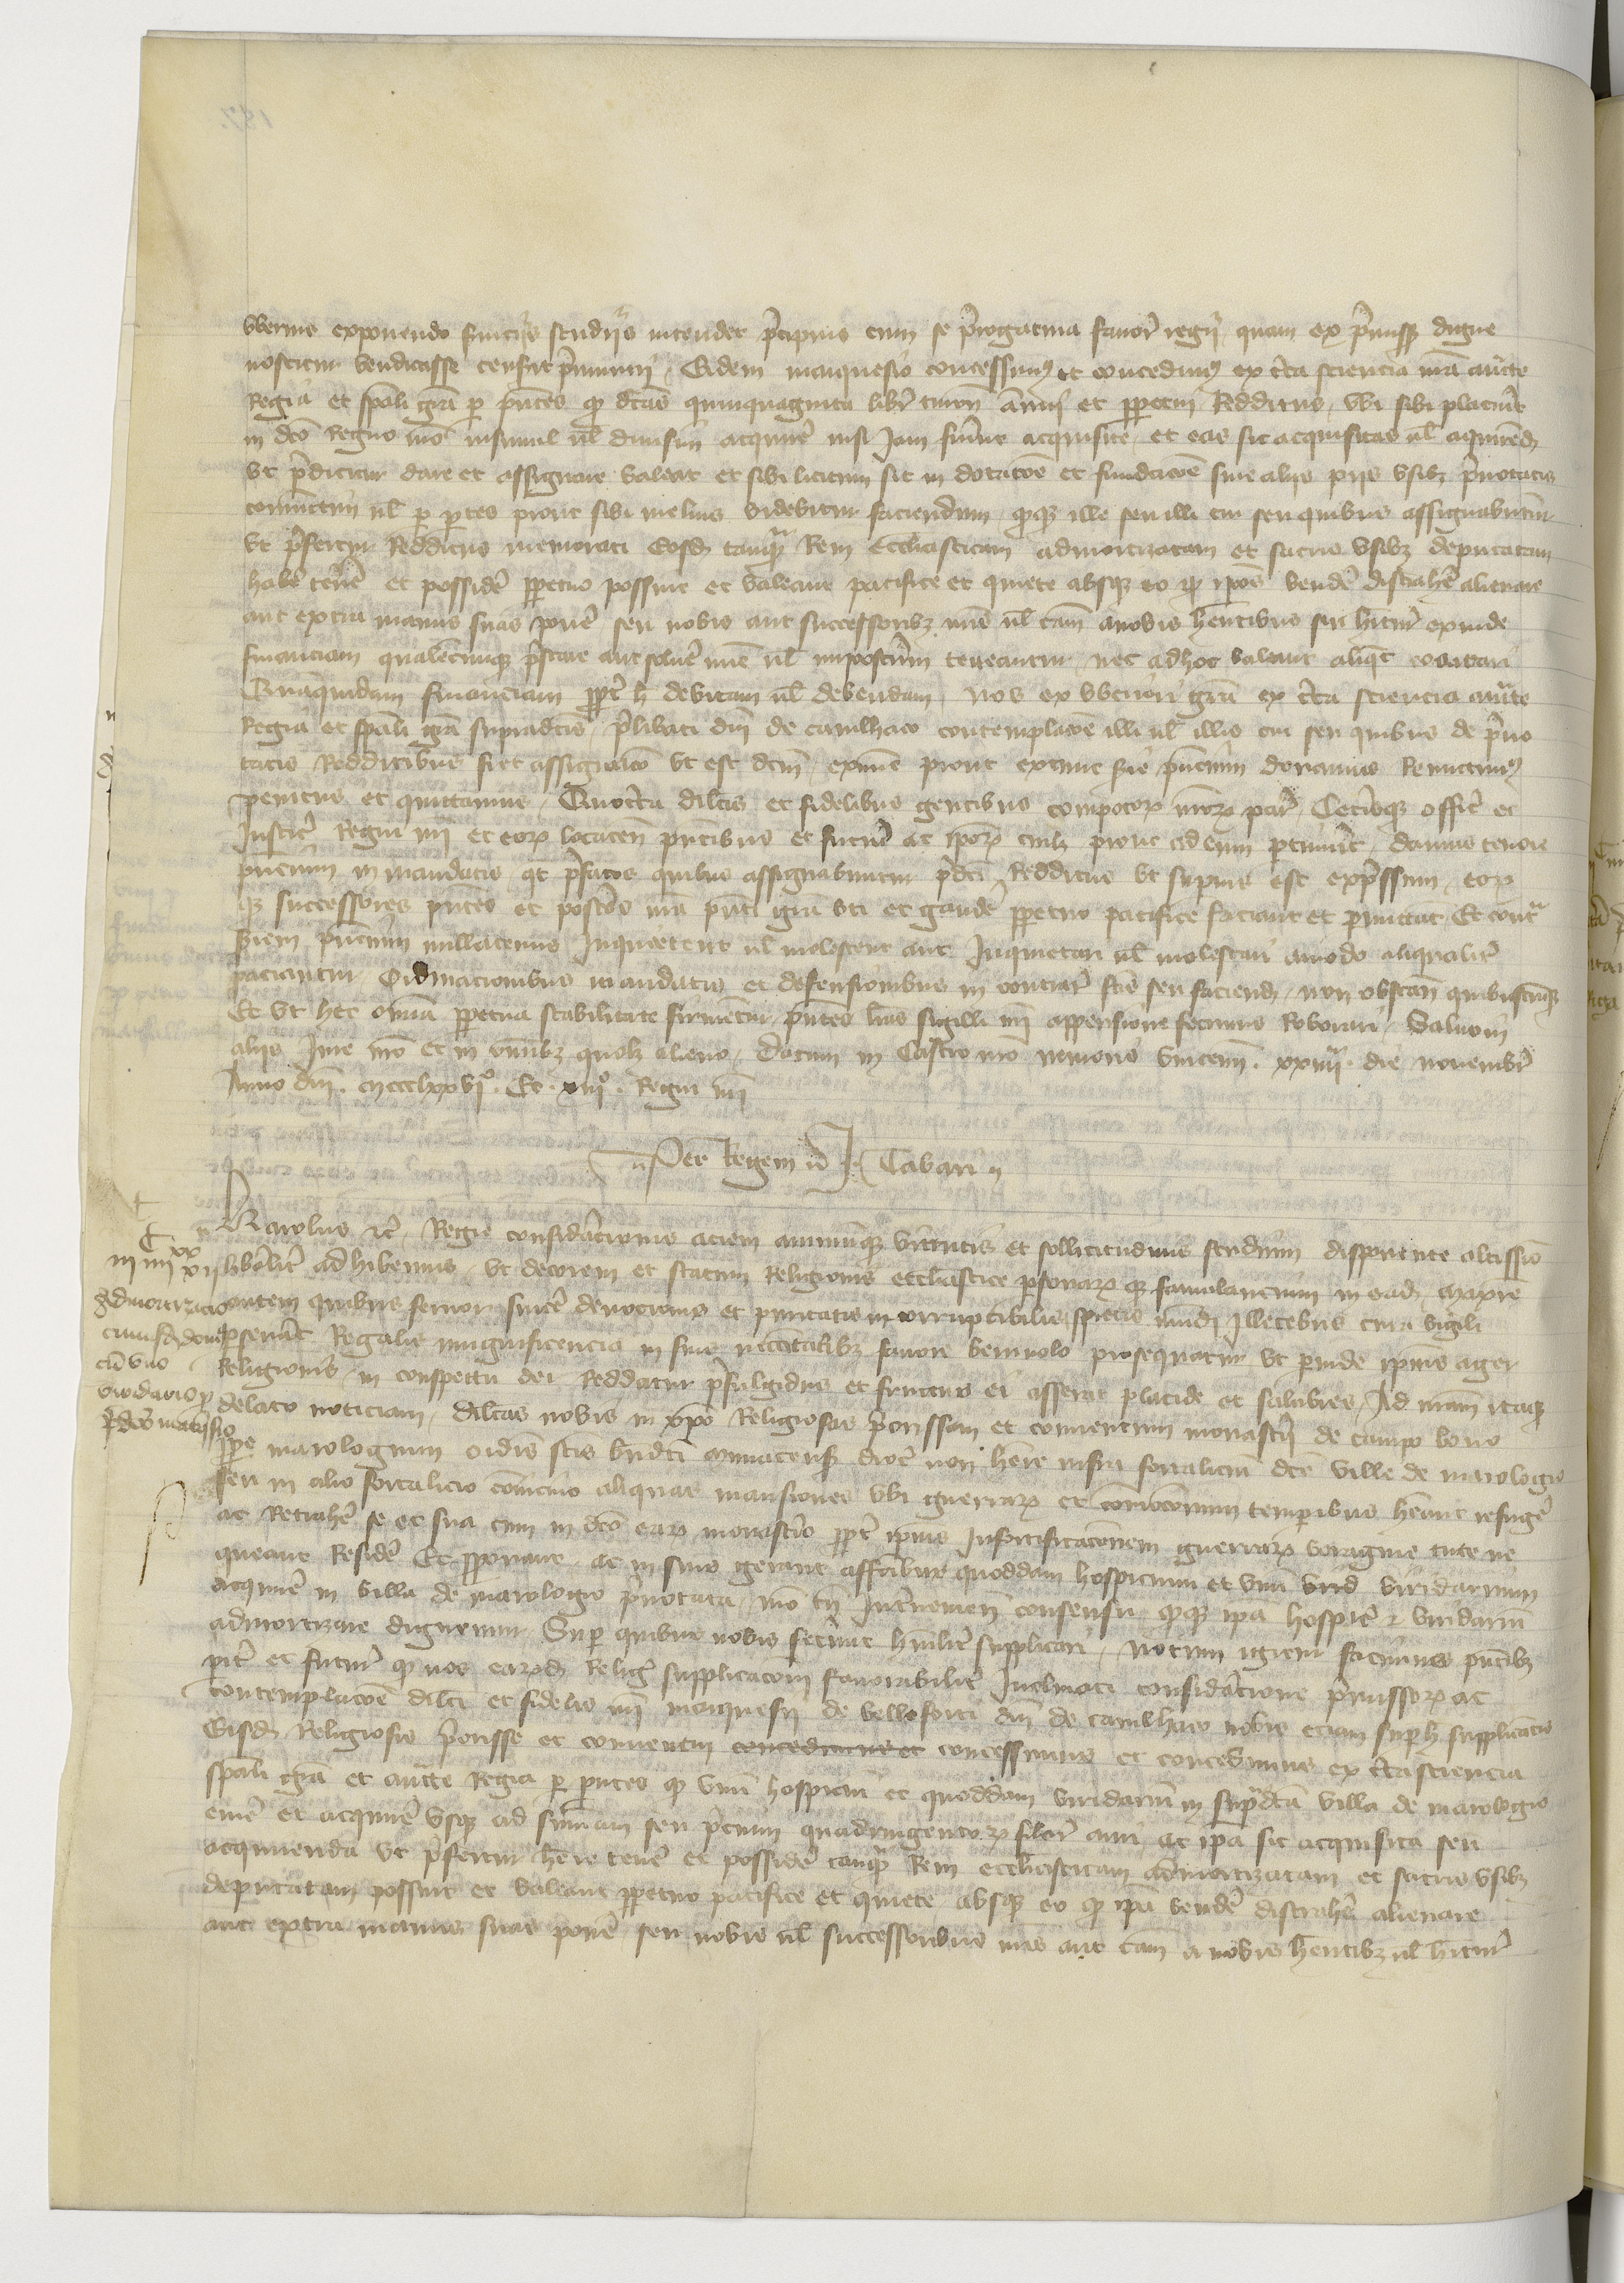 vberius exponendo serviciis studiis intendet precipuis cum se prerogativa favoris regii quam ex premissis digne
noscitur vendicasse censeat premuniri. Eidem marquesio concessimus et concedimus ex certa sciencia nostra auctoritate
Regia et speciali gratia per presentes quod dictas quinquaginta libras turonensium annui et perpetui Redditus, vbi sibi placuerit
in dicto Regno nostro insimul vel divisim acquirere nisi Jam fuerint acquisite et eas sic acquisitas vel acquirendas
vt predicitur dare et assignare valeat et sibi licitum sit in dotacionem et fundacionem sive aliis piis vsibus prenotatis
coniunctim vel per partes prout sibi melius videbitur faciendum quodque ille seu illi cui seu quibus assignabuntur
vt prefertur Redditus memorati Eosdem tanquam Rem Ecclesiasticam admortizatam et sacris vsibus deputatam
habere tenere et possidere perpetuo possint et valeant pacifice et quiete absque eo quod ipsos vendere distrahere alienare
aut extra manus suas ponere seu nobis aut successoribus nostris vel causam a nobis habentibus sive habituris exinde
financiam qualemcunque prestare aut solvere nunc vel imposterum teneantur nec ad hoc valeant aliquatenus coartari
Quamquidem financiam propter hoc debitam vel debendam, Nos ex vberiori gratia ex certa sciencia auctoritate
Regia et speciali gratia supradictis, prelibati domini de Canilhaco contemplacione illi vel illis cui seu quibus de preno
tatis Redditibus fiet assignacio vt est dictum, exnunc prout extunc serie presencium donamus Remittimus
penitus et quittamus, Quocirca dilectis et fidelibus gentibus compotorum nostrorum Parisius Ceterisque officiariis et
Justiciariis Regni nostri et eorum locatenentibus presentibus et futuris ac ipsorum cuilibet prout ad eum pertinuerit, damus tenore
presencium in mandatis quatinus prefatos quibus assignabuntur predicti Redditus vt superius est expressum, eorum
que successores presentes et posteros nostra presenti gratia vti et gaudere perpetuo pacifice faciant et permittant Et contra
seriem presencium nullatenus Inquietent vel molestent aut Inquietari vel molestari a modo aliqualiter
paciantur Ordinacionibus mandatis et defensionibus in contrarium factis seu faciendis non obstantibus quibuscunque
Et vt hec omnia perpetua stabilitate firmentur presentes litteras sigilli nostri appensione fecimus Roborari, Salvo in
aliis Jure nostro Et in omnibus quolibet alieno, Datum in Castro nostro nemoris Vincennarum. XXIIIIa. die novembris
Anno domini. MCCCLXXVIo. Et. XIIIo. Regni nostri
Per Regem J. Tabari
Karolus etc. Regie consideracionis aciem animumque virtutis et sollicitudinis studium disponente altissimo
liberaliter adhibemus, vt decorem et statum Religionis ecclesiastice personarum que famulancium in eadem, maxime
autem quibus fervor sincere devocionis et puritatis incorruptibilis spretis mundi Illecebris cura vigili
perseverat Regalis magnificencia in suis necessitatibus favore benivolo prosequatur vt perinde ipsius ager
Religionis, in conspectu dei Reddatur prefulgidus et fructus ei afferat placide et salubres, Ad nostram itaque
delato noticiam, dilectas nobis in Christo Religiosas priorissam et conventum monasterii de Campo bono
prope Marologium ordinis sancti Benedicti Mimatensis diocesis non habere infra fortalicium dicte ville de Marologio
seu in alio fortalicio convicino aliquas mansiones vbi guerrarum et commocionum temporibus habeant refugere
ac Retrahere se et sua cum in dicto earum monasterio propter ipsius Infortificacionem guerrarum voragine tute ne
queant Residere Et proponant ac in suis gerant affectibus quoddam hospicium et vnum virid viridarium
acquirere in villa de Marologio prenotata, nostro tamen Interveniente consensu quodque ipsa hospicium et viridarium
admortizare dignemur Super quibus nobis fecerunt humiliter supplicari, Notum igitur facimus presentibus
pariter et futuris quod nos earumdem Religiosarum supplicacioni favorabiliter Inclinati consideracione premissorum ac
contemplacione dilecti et fidelis nostri marquesii de Belloforti domini de Canilhaco nobis eciam super hoc supplicantis
Eisdem Religiosis priorisse et conventui concedimus et concessimus et concedimus ex certa sciencia
speciali gratia et auctoritate Regia per presentes quod vnum hospicium et quoddam viridarium in supradicta villa de Marologio
emere et acquirere vsque ad summam seu precium quadringentorum florenorum auri ac ipsa sic acquisita seu
acquirenda vt prefertur habere tenere et possidere tanquam Rem ecclesiasticam admortizatam et sacris vsibus
deputatam possint et valeant perpetuo pacifice et quiete absque eo quod ipsa vendere distrahere alienare
aut extra manus suas ponere seu nobis vel successoribus nostris aut causam a nobis habentibus vel habituris